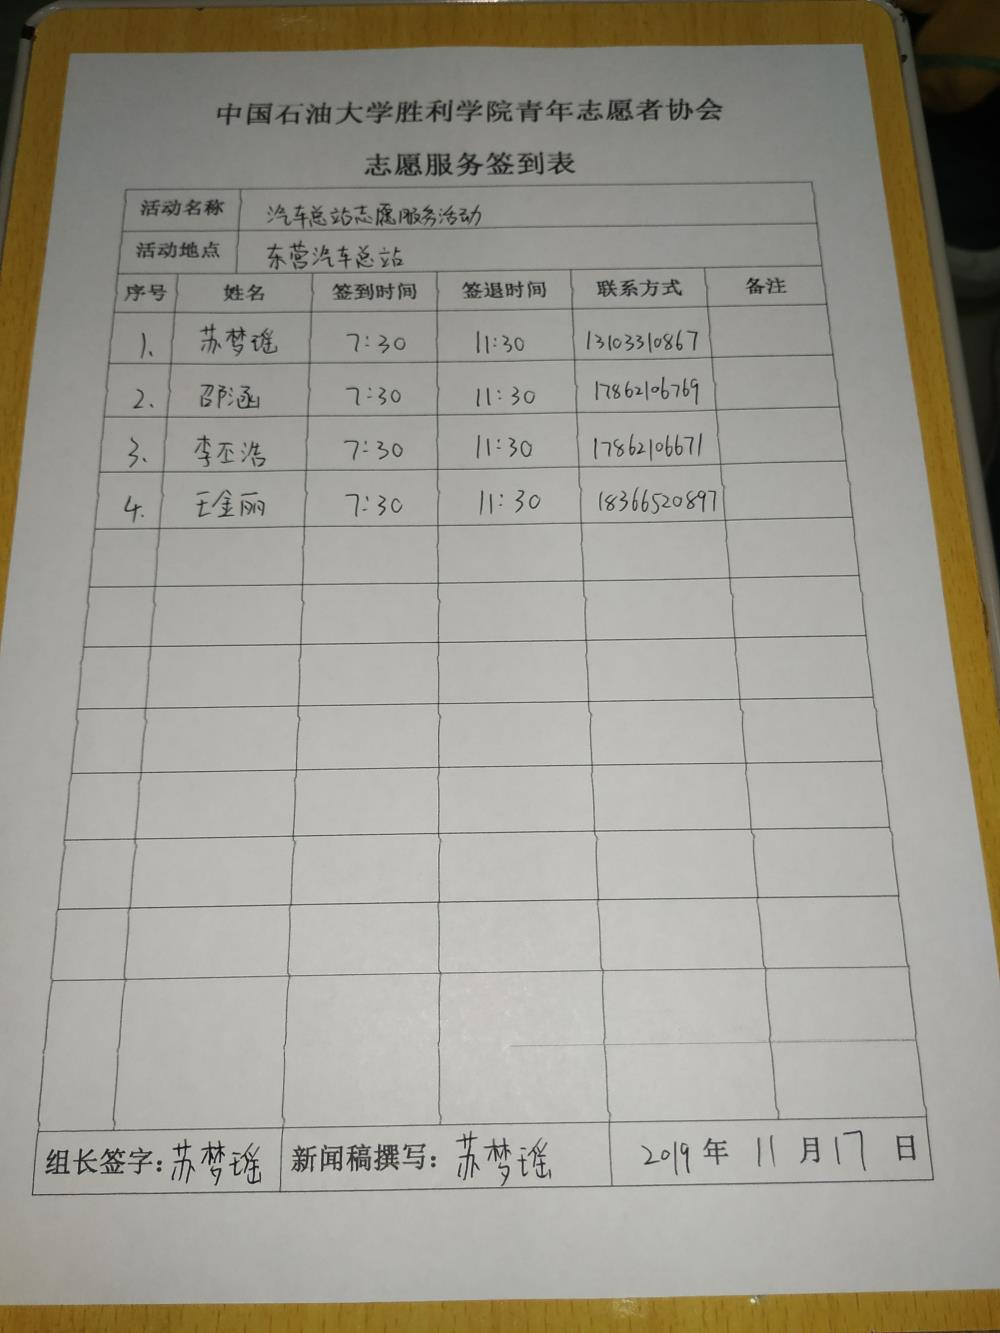 中国石油大学胜利学院青年志愿者协会
志愿服务签到表
活动名称 汽车总站志愿服务活动
活动地点 东营汽车总站
序号 姓名 签到时间 签退时间 联系方式 备注
1. 苏梦瑶 7:30 11:30 13103310867
2. 邵涵 7:30 11:30 17862106769
3. 李丕浩 7:30 11:30 17862106671
4. 王金丽 7:30 11:30 18366520897
组长签字：苏梦瑶 新闻稿撰写：苏梦瑶 2019 年 11 月 17 日